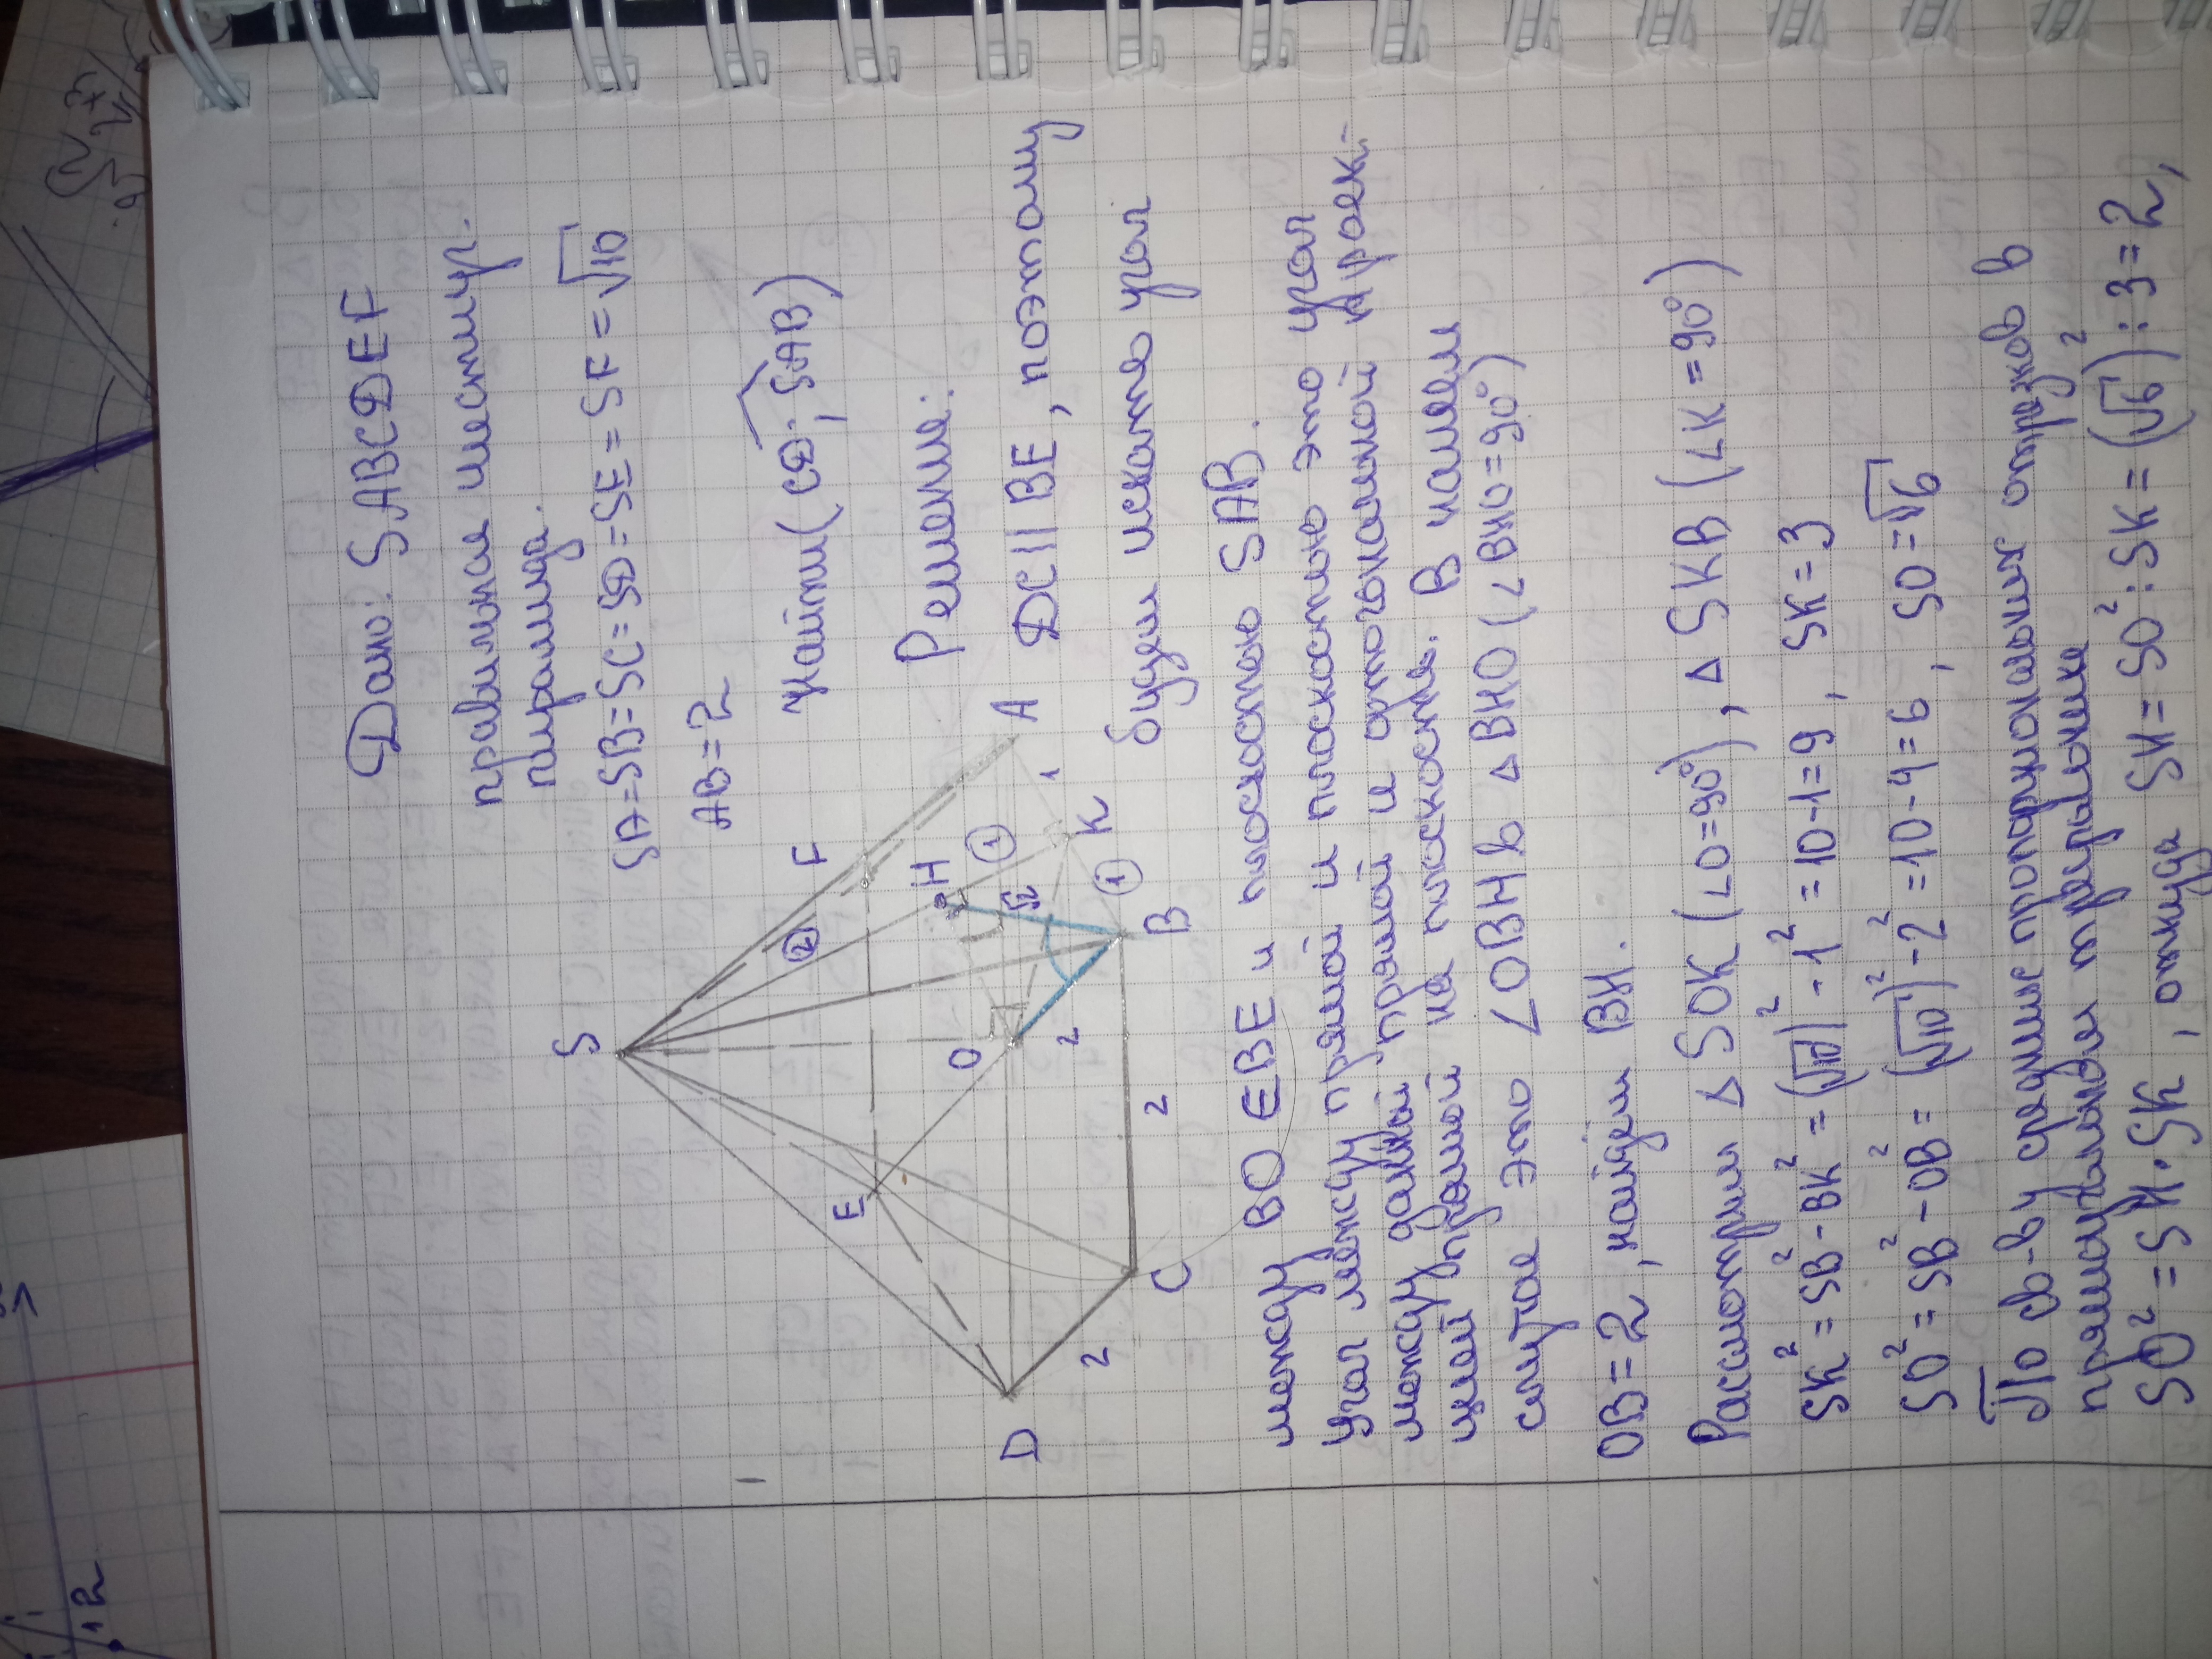 Дано: SABCDEF
правильная шестиуг.
пирамида.
SA=SB=SC=SD=SE=SF=√10
AB=2
Найти(CD; SAB)
Решение:
DC||BE, поэтому
будем искать угол
S
F
2
H
1
E
O
√2
A
1
K
1
2
B
D
2
C
2
между BO∈BE и плоскостью SAB.
Угол между прямой и плоскостью это угол
между данной прямой и ортогональной проек-
цией прямой на плоскость. В нашем
случае это ∠OBH в △BHO (∠BHO=90°)
OB=2, найдем BH.
Рассмотрим △SOK (∠O=90°), △SKB (∠K=90°)
SK²=SB²-BK²=(√10)²-1²=10-1=9, SK=3
SO²=SB²-OB²=(√10)²-2²=10-4=6, SO=√6
По св-ву среднего пропорционального отрезков в
прямоугольном треугольнике
SO²=SH·SK, откуда SH=SO²:SK=(√6)²:3=2,